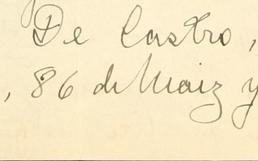 De Castro,
, 86 de Maiz y